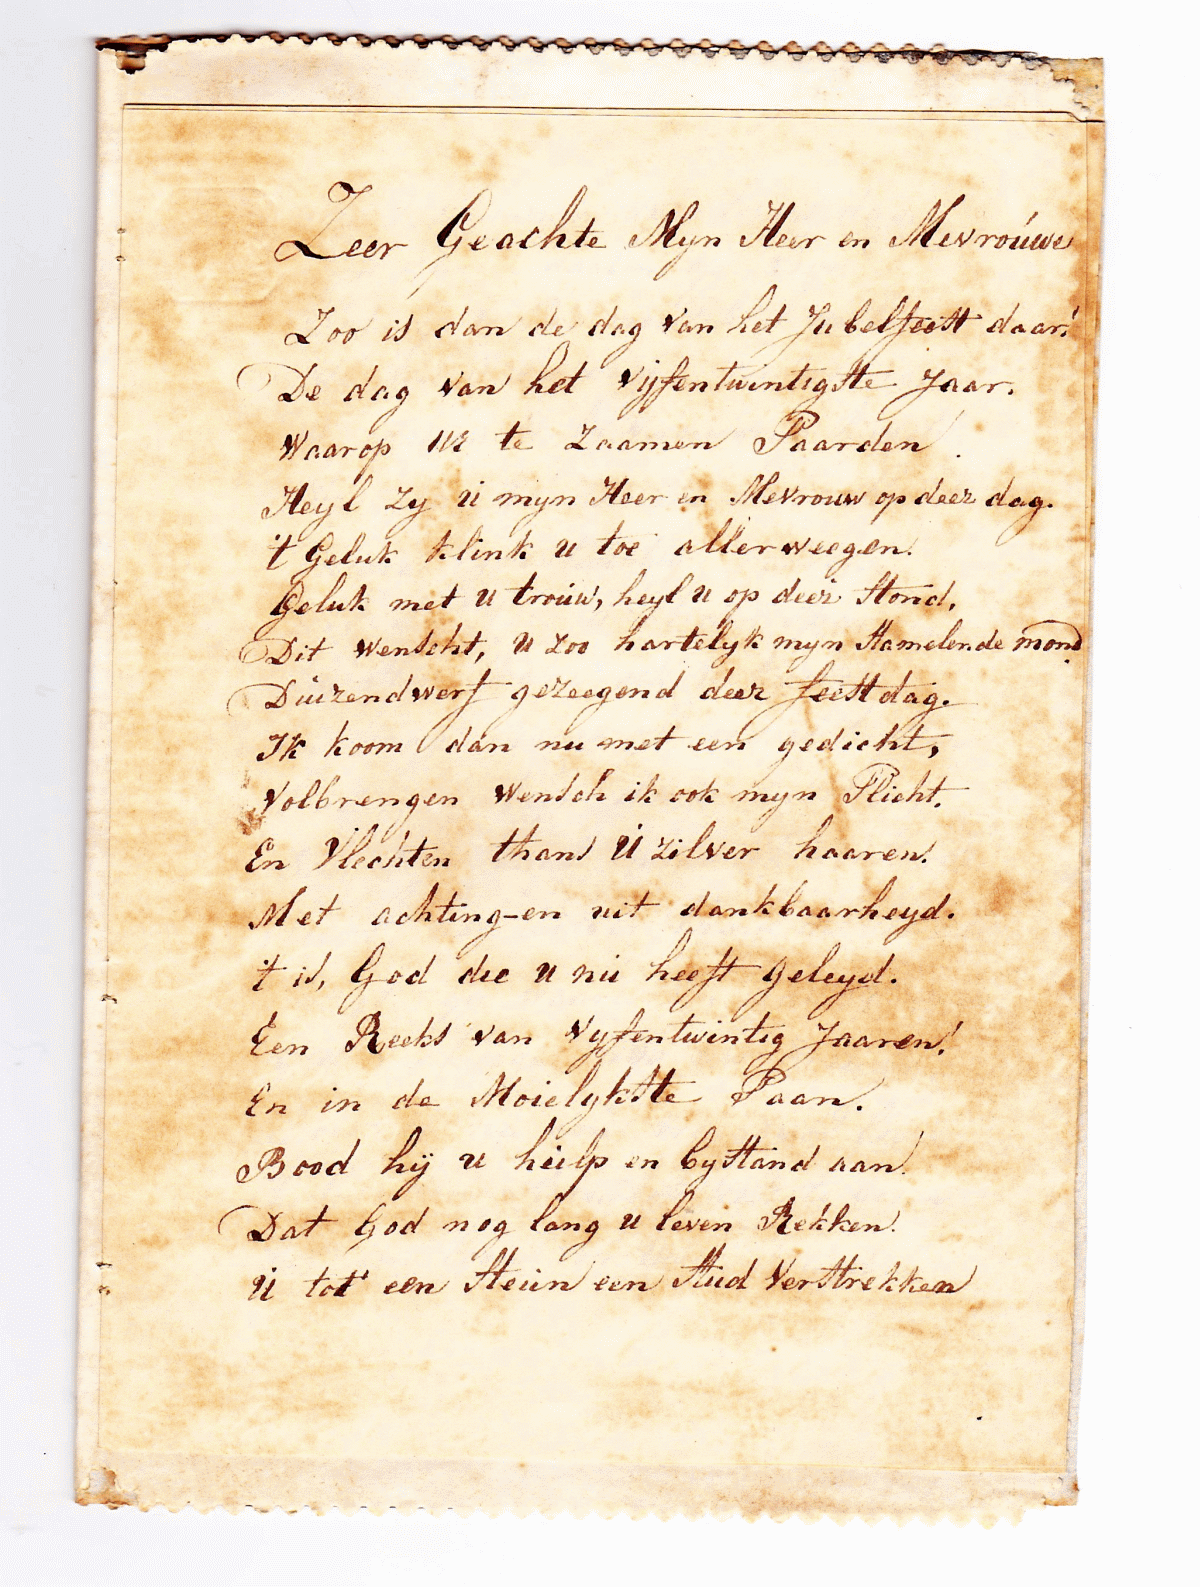 Zeer Geachte Myn Heer en Mevroúwe
Zoo is dan de dag van het Jubelfeest daar!
De dag van het vijfentwintigste Jaar.
Waarop we te zaamen Paarden
Heyl zy ú myn Heer en Mevrouw op deez dag.
't Geluk klink u toe allerweegen.
Geluk met u troúw, heyl u op deez stond,
Dit wenscht, u zoo hartelyk myn stamelende mond
Dúizendwerf gezeegend deez feestdag.
Ik koom dan nu met een gedicht,
Volbrengen wensch ik ook myn Plicht.
En Vlechten thans Ú zilver haaren.
Met achting-en uit dankbaarheyd.
't is, God die u nú heeft geleyd.
Een Reeks van vyfentwintig Jaaren!
En in de Moielykste Paan.
Bood hij u húlp en bystand aan.
Dat God nog lang u leven Rekken.
Ú tot een steún een stud verstrekken